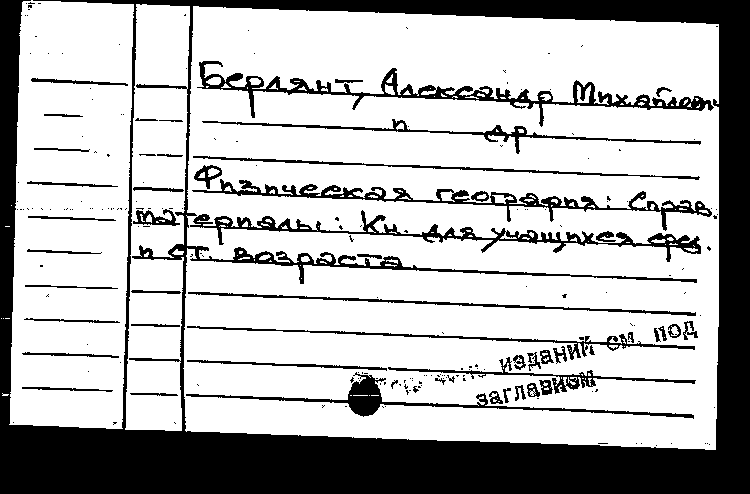 Берлянт, Александр Михайлович
и др.
Физическая география: Справ.
материалы: Кн. для учащихся сред.
и ст. возраста.
изданий см. под
заглавием